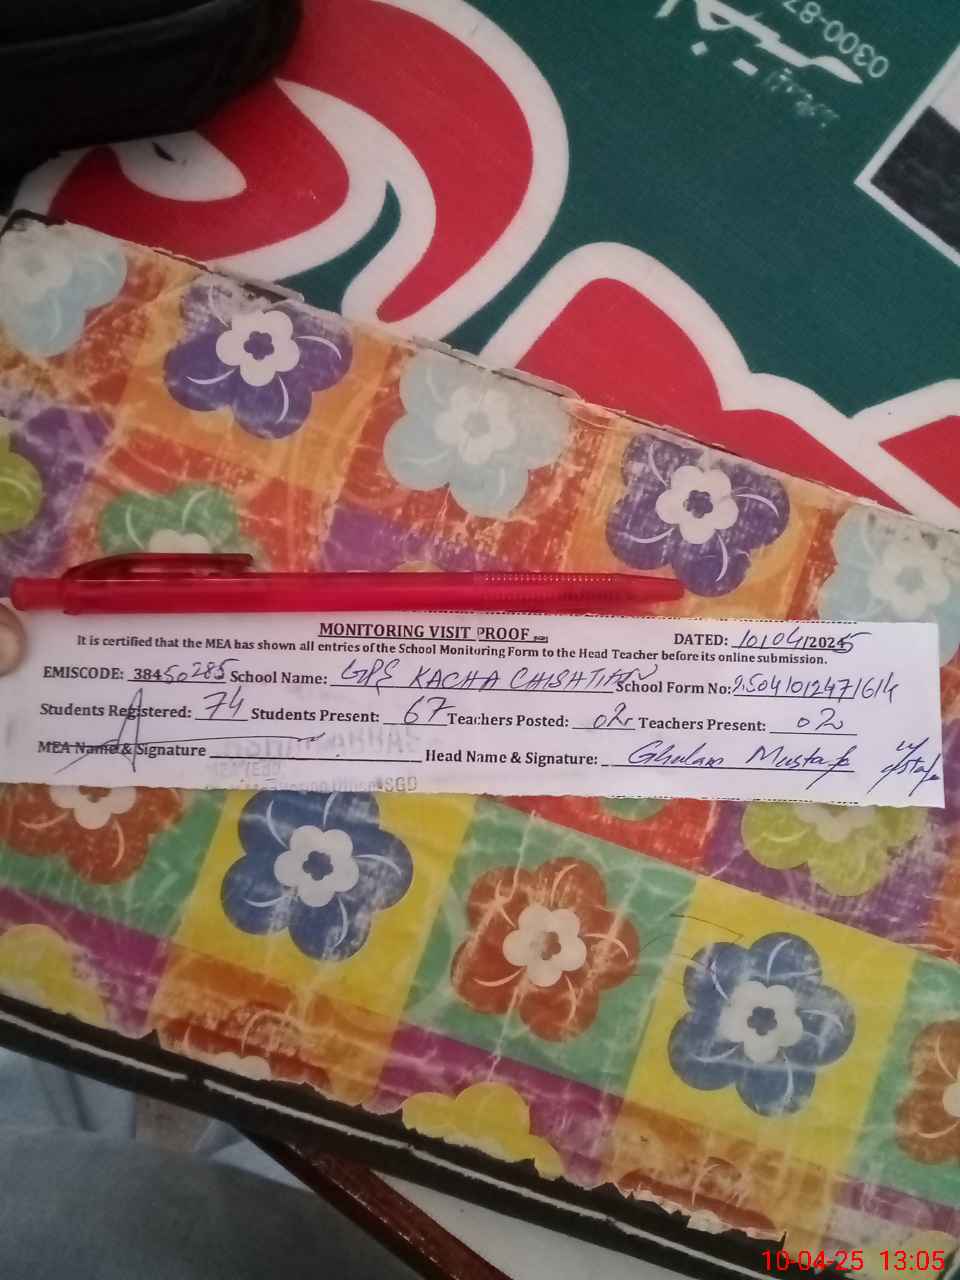 0300-87
MONITORING VISIT PROOF
DATED: 10/04/2025
It is certified that the MEA has shown all entries of the School Monitoring Form to the Head Teacher before its online submission.
EMISCODE: 38450285 School Name: GPS KACHA CHISHTIAN School Form No:
Students Registered: 74 Students Present: 67 Teachers Posted: 02 Teachers Present: 02
MEA Name & Signature Head Name & Signature: Ghulam Mustafa
SGD
10-04-25 13:05